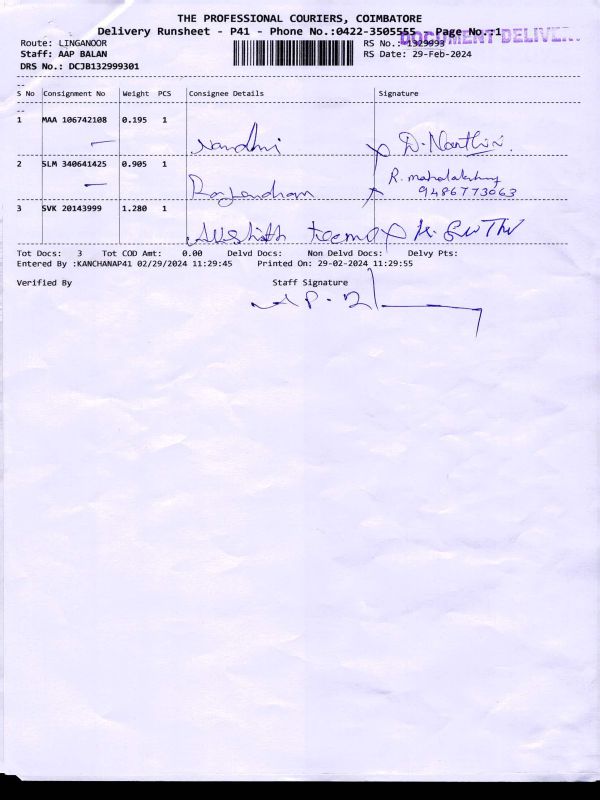 THE PROFESSIONAL COURIERS, COIMBATORE
Delivery Runsheet - P41 - Phone No.:0422-3505555   Page No.:1
DOCUMENT DELIVERY
Route: LINGANOOR   RS No.: 1329993
Staff: AAP BALAN   RS Date: 29-Feb-2024
DRS No.: DCJB132999301
S No   Consignment No   Weight   PCS   Consignee Details   Signature
1   MAA 106742108   0.195   1   Nandhi   D. Nanthini
2   SLM 340641425   0.905   1   Rajendham   R. mahalakshmy
9486773063
3   SVK 20143999   1.280   1
Tot Docs:   3   Tot COD Amt:   0.00   Delvd Docs:   Non Delvd Docs:   Delvy Pts:
Entered By :KANCHANAP41 02/29/2024 11:29:45   Printed On: 29-02-2024 11:29:55
Verified By   Staff Signature